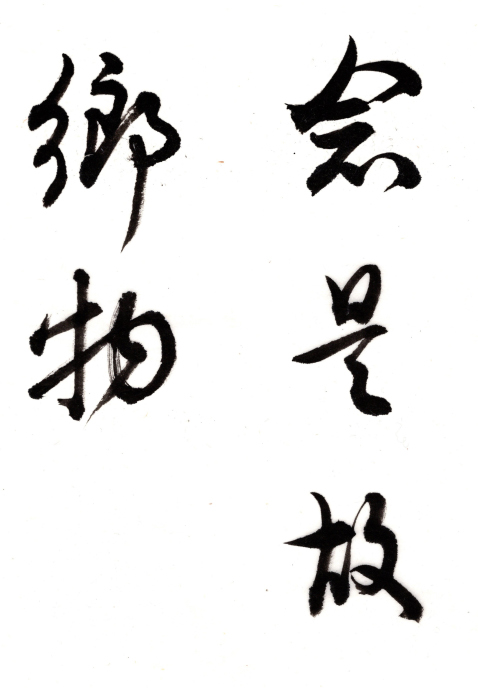 念是故
鄉物